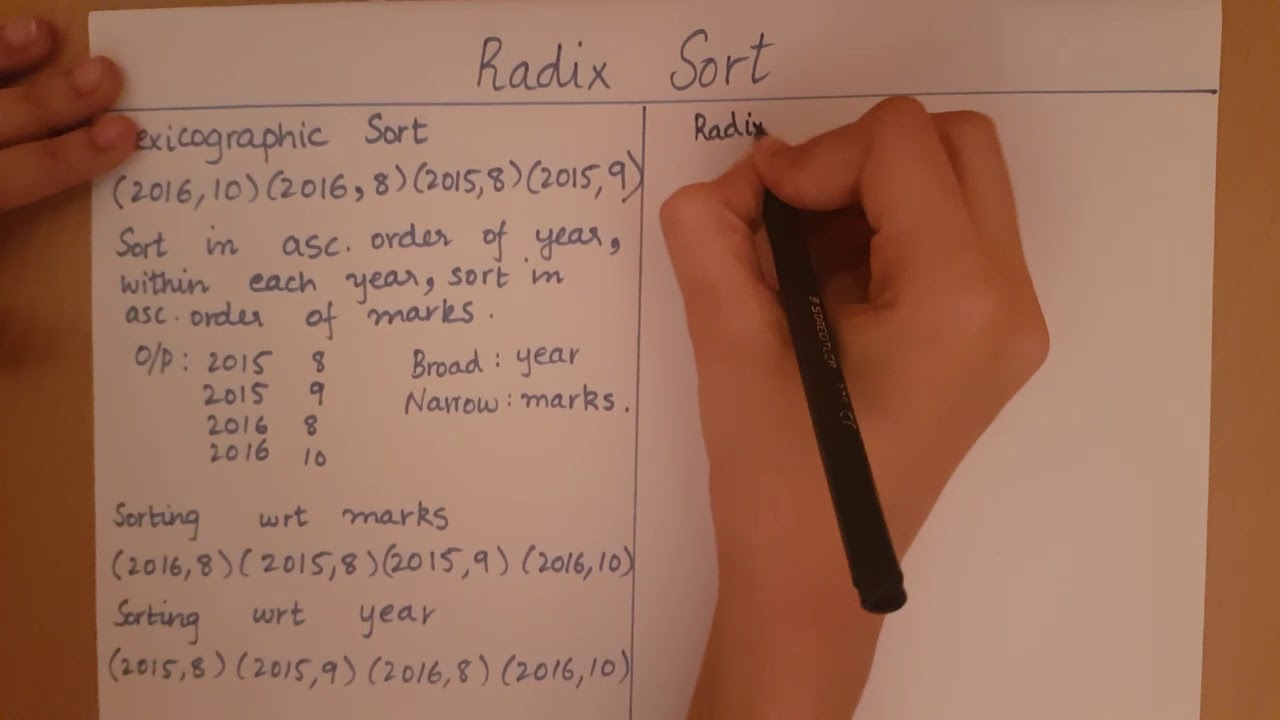 Radix Sort
exicographic Sort
(2016,10) (2016,8) (2015,8) (2015,9)
Sort in asc. order of year,
within each year, sort in
asc. order of marks.
O/P: 2015 8
2015 9
2016 8
2016 10
Broad : year
Narrow : marks.
Sorting wrt marks
(2016,8) (2015,8) (2015,9) (2016,10)
Sorting wrt year
(2015,8) (2015,9) (2016,8) (2016,10)
Radix
STAEDTLER